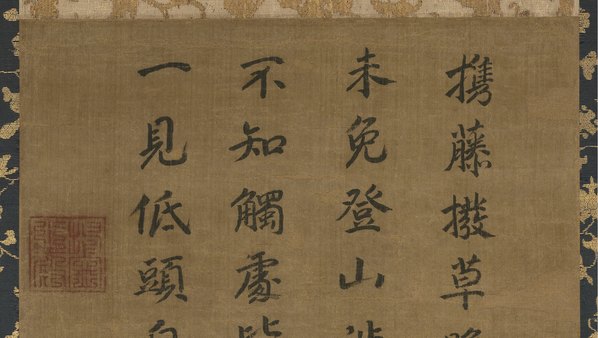 携藤撥草
未免登山
不知觸處
一見低頭